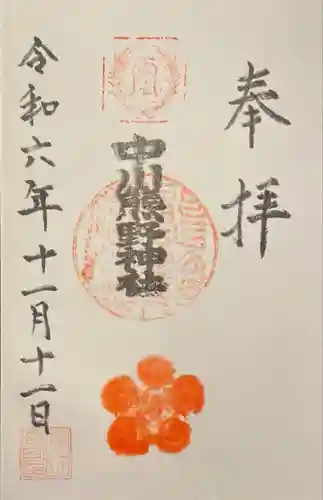 奉拝
中川熊野神社
令和六年十一月十一日